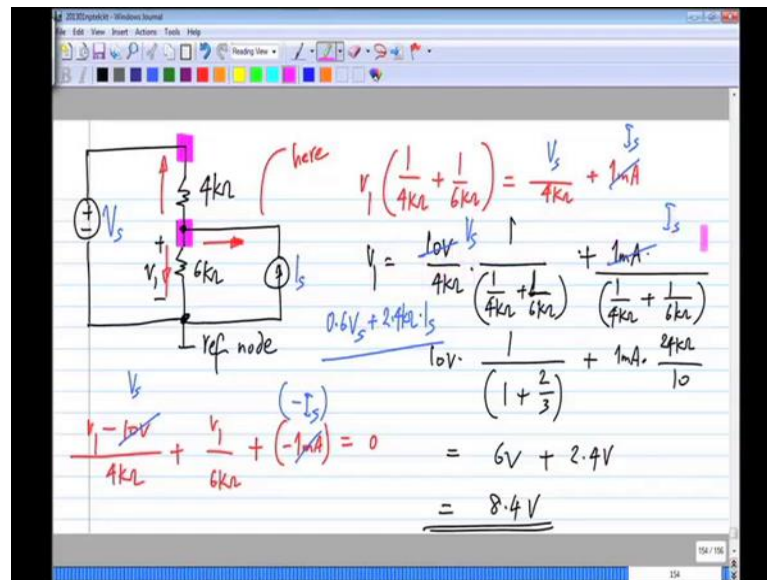 201301nptelckt - Windows Journal
File Edit View Insert Actions Tools Help
Reading View
B I
here
4kΩ
Vs
+
v1
-
6kΩ
Is
ref node
v1 (1/4kΩ + 1/6kΩ) = Vs/4kΩ + 1mA Is
v1 = 10V Vs/4kΩ · 1/(1/4kΩ + 1/6kΩ) + 1mA· Is/(1/4kΩ + 1/6kΩ)
0.6Vs + 2.4kΩ·Is
10V· 1/(1 + 2/3) + 1mA· 24kΩ/10
= 6V + 2.4V
= 8.4V
Vs (-Is)
v1 - 10V/4kΩ + v1/6kΩ + (-1mA) = 0
154 / 156
154